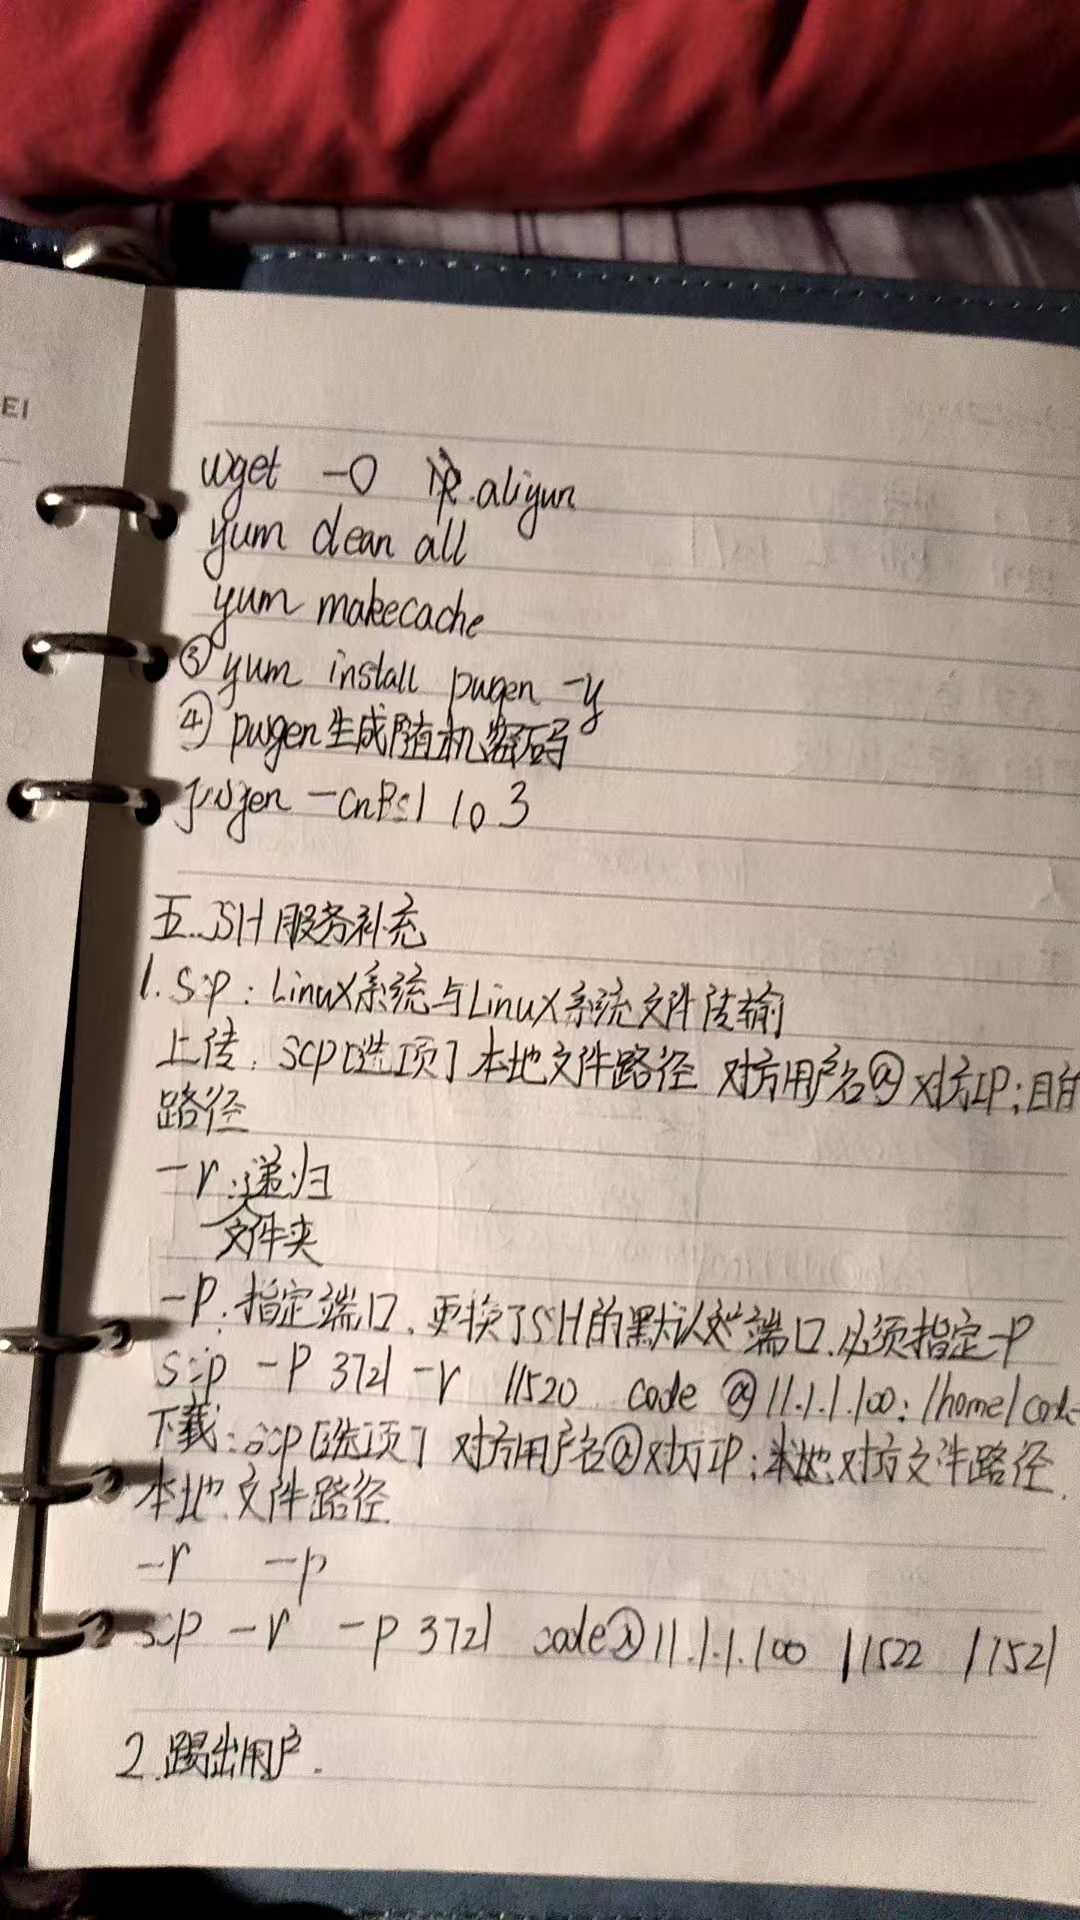 EI
wget -O .aliyun
yum clean all
yum makecache
③ yum install pwgen -y
④ pwgen生成随机密码
pwgen -cnBs1 10 3
五.SSH服务补充
1. scp: Linux系统与Linux系统文件传输
上传: scp[选项] 本地文件路径 对方用户名@对方IP:目的
路径
-r:递归
文件夹
-P:指定端口.更换了SSH的默认端口.必须指定-P
scp -P 3721 -r 11520 code @11.1.1.100:/home/code
下载:scp[选项] 对方用户名@对方IP:对方文件路径.
本地文件路径.
-r -p
scp -r -p 3721 code@11.1.1.100 11522 11521
2.踢出用户.